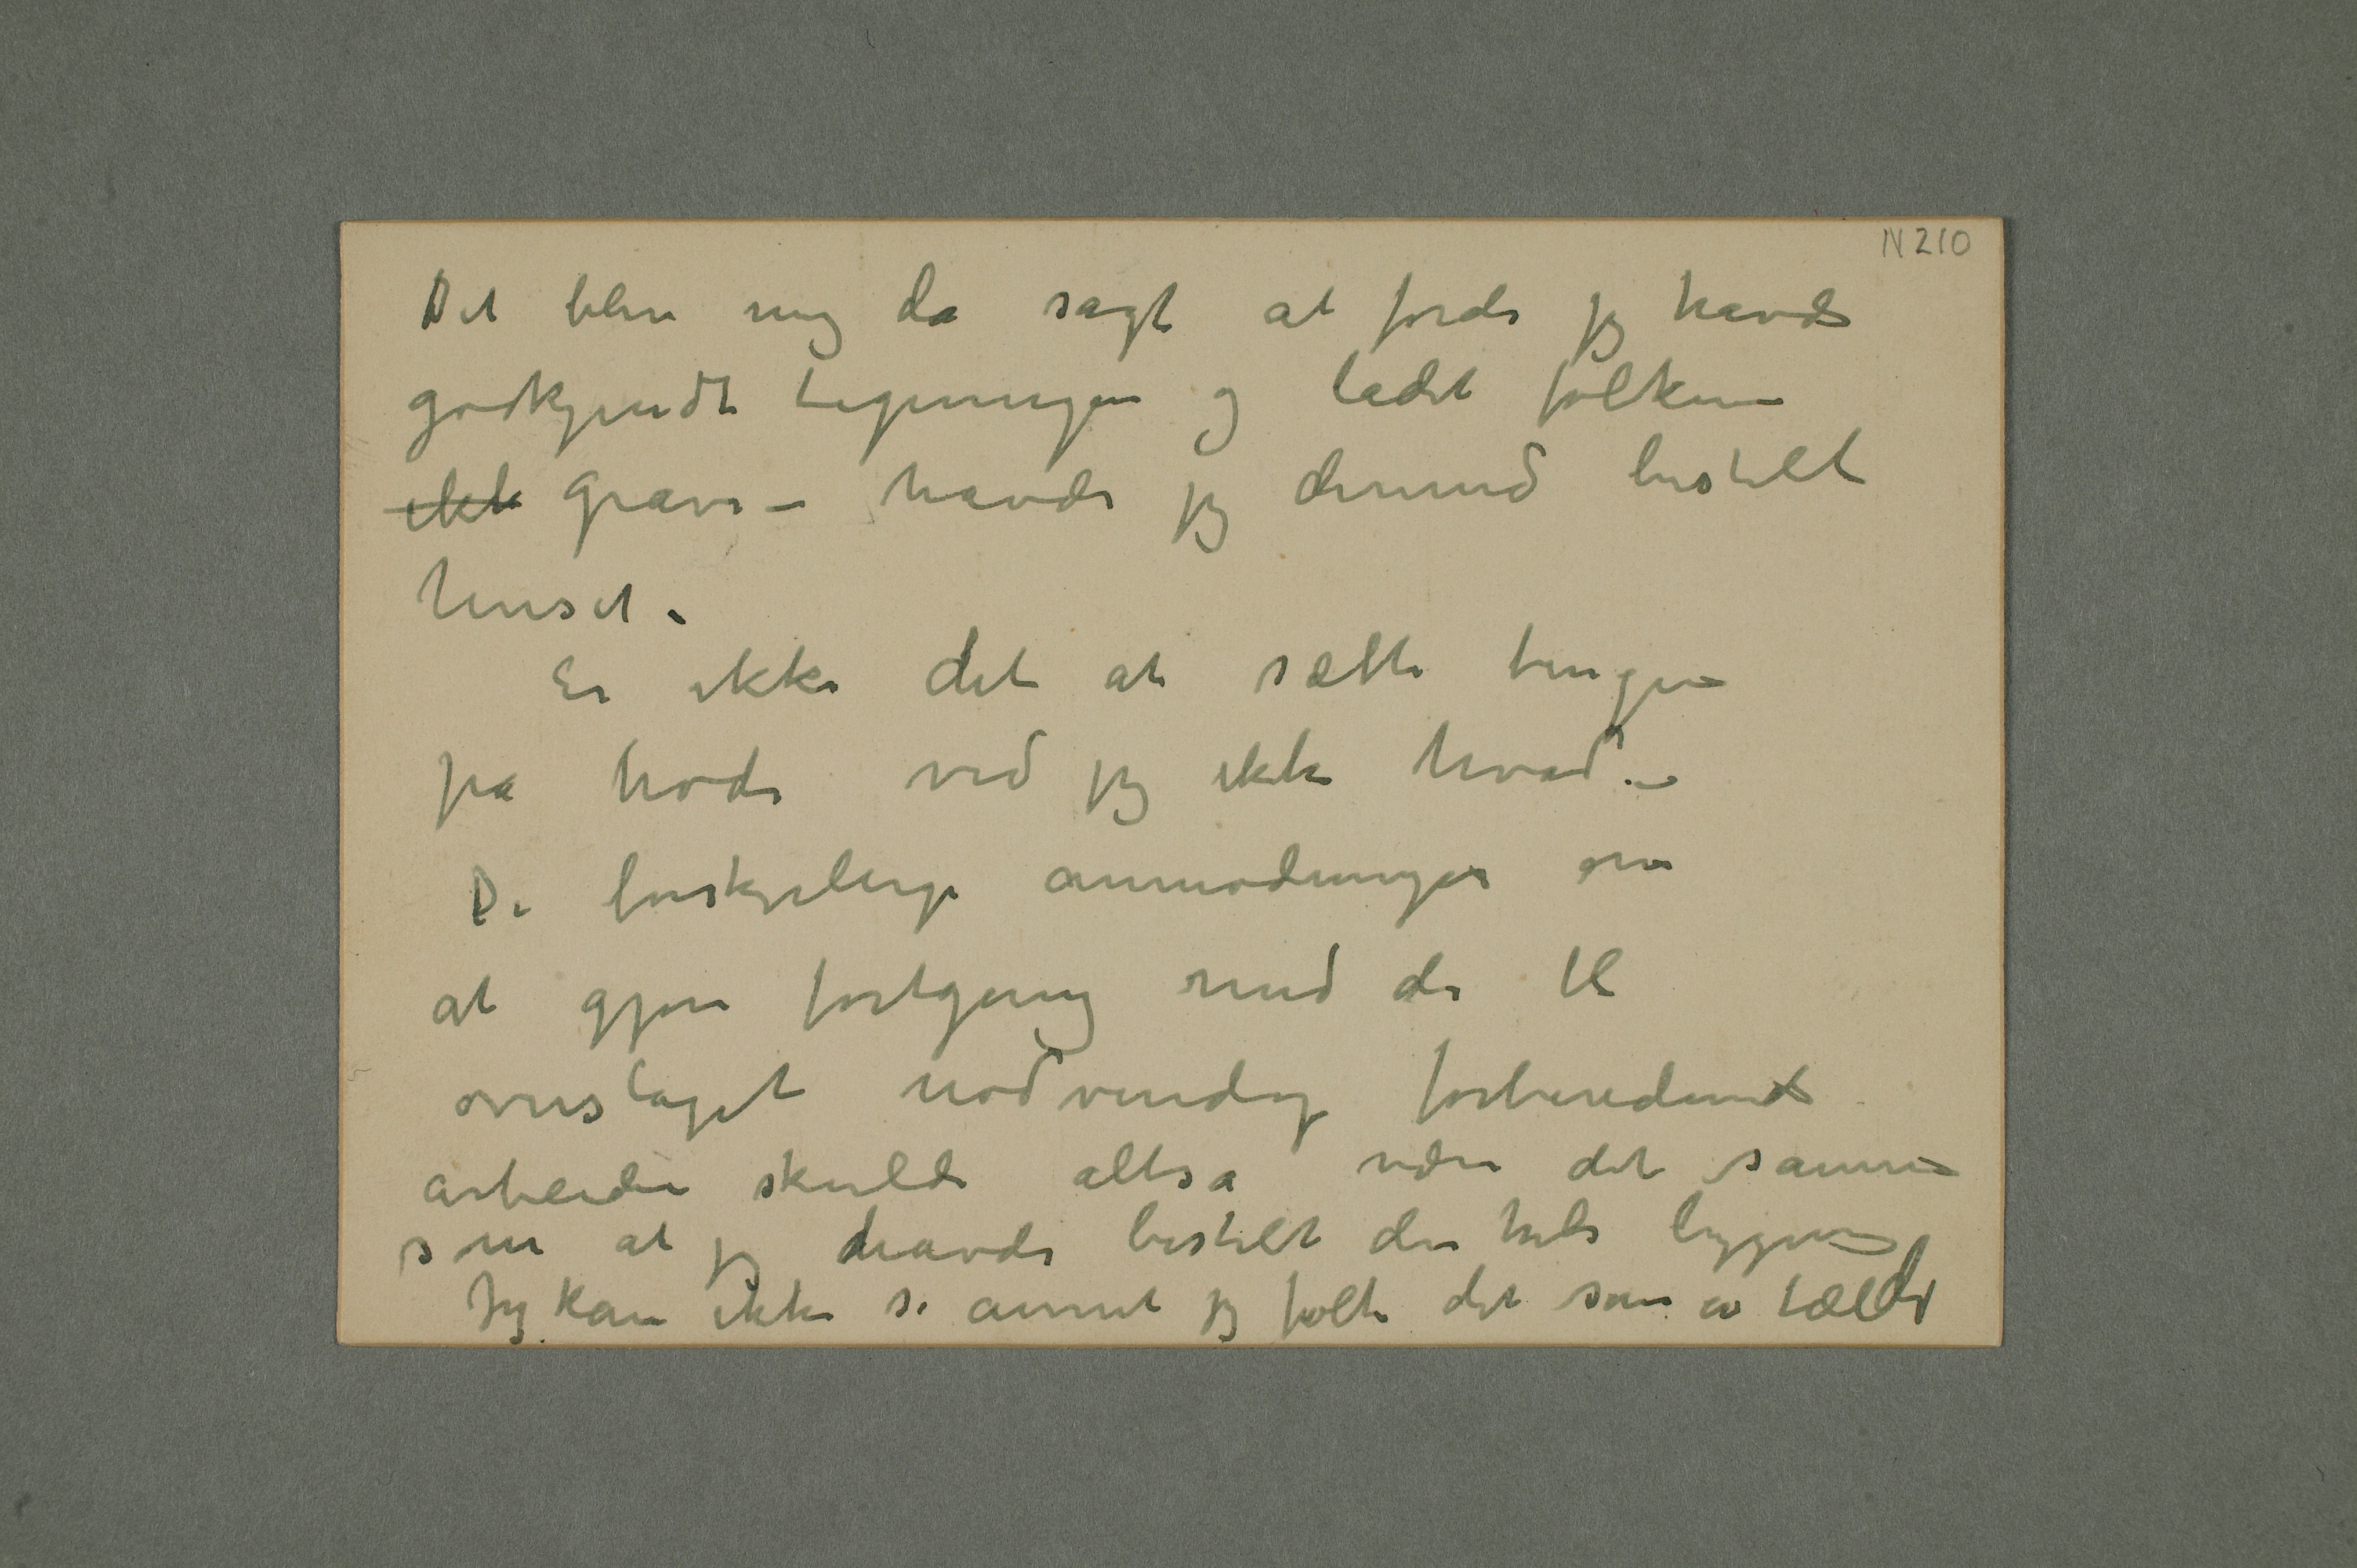 N 210
Det blev mig da sagt at fordi jeg havde
godkjendt tegningen og ladet folkene
ikke grave – havde jeg dermed bestilt
huset.
Er ikke det at sætte tingen
på hode ved jeg ikke hvad. –
De forskjelige anmodninger om
at gjøre fortgang med de til
overslaget nødvendige forberedende
arbeider skulde altså være det samme
som at jeg havde bestilt den hele bygning
Jeg kan ikke se annet jeg følte det som en fælde